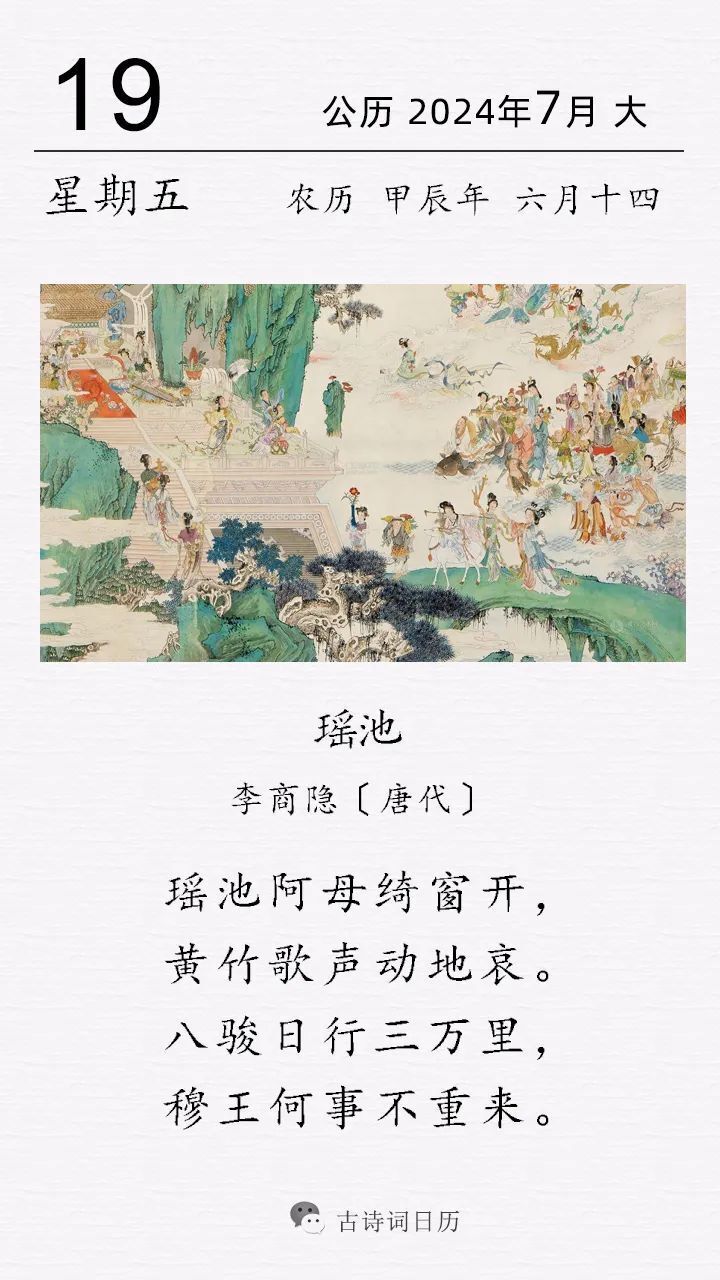 19
公历 2024年7月 大
星期五
农历 甲辰年 六月十四
瑶池
李商隐〔唐代〕
瑶池阿母绮窗开，
黄竹歌声动地哀。
八骏日行三万里，
穆王何事不重来。
古诗词日历